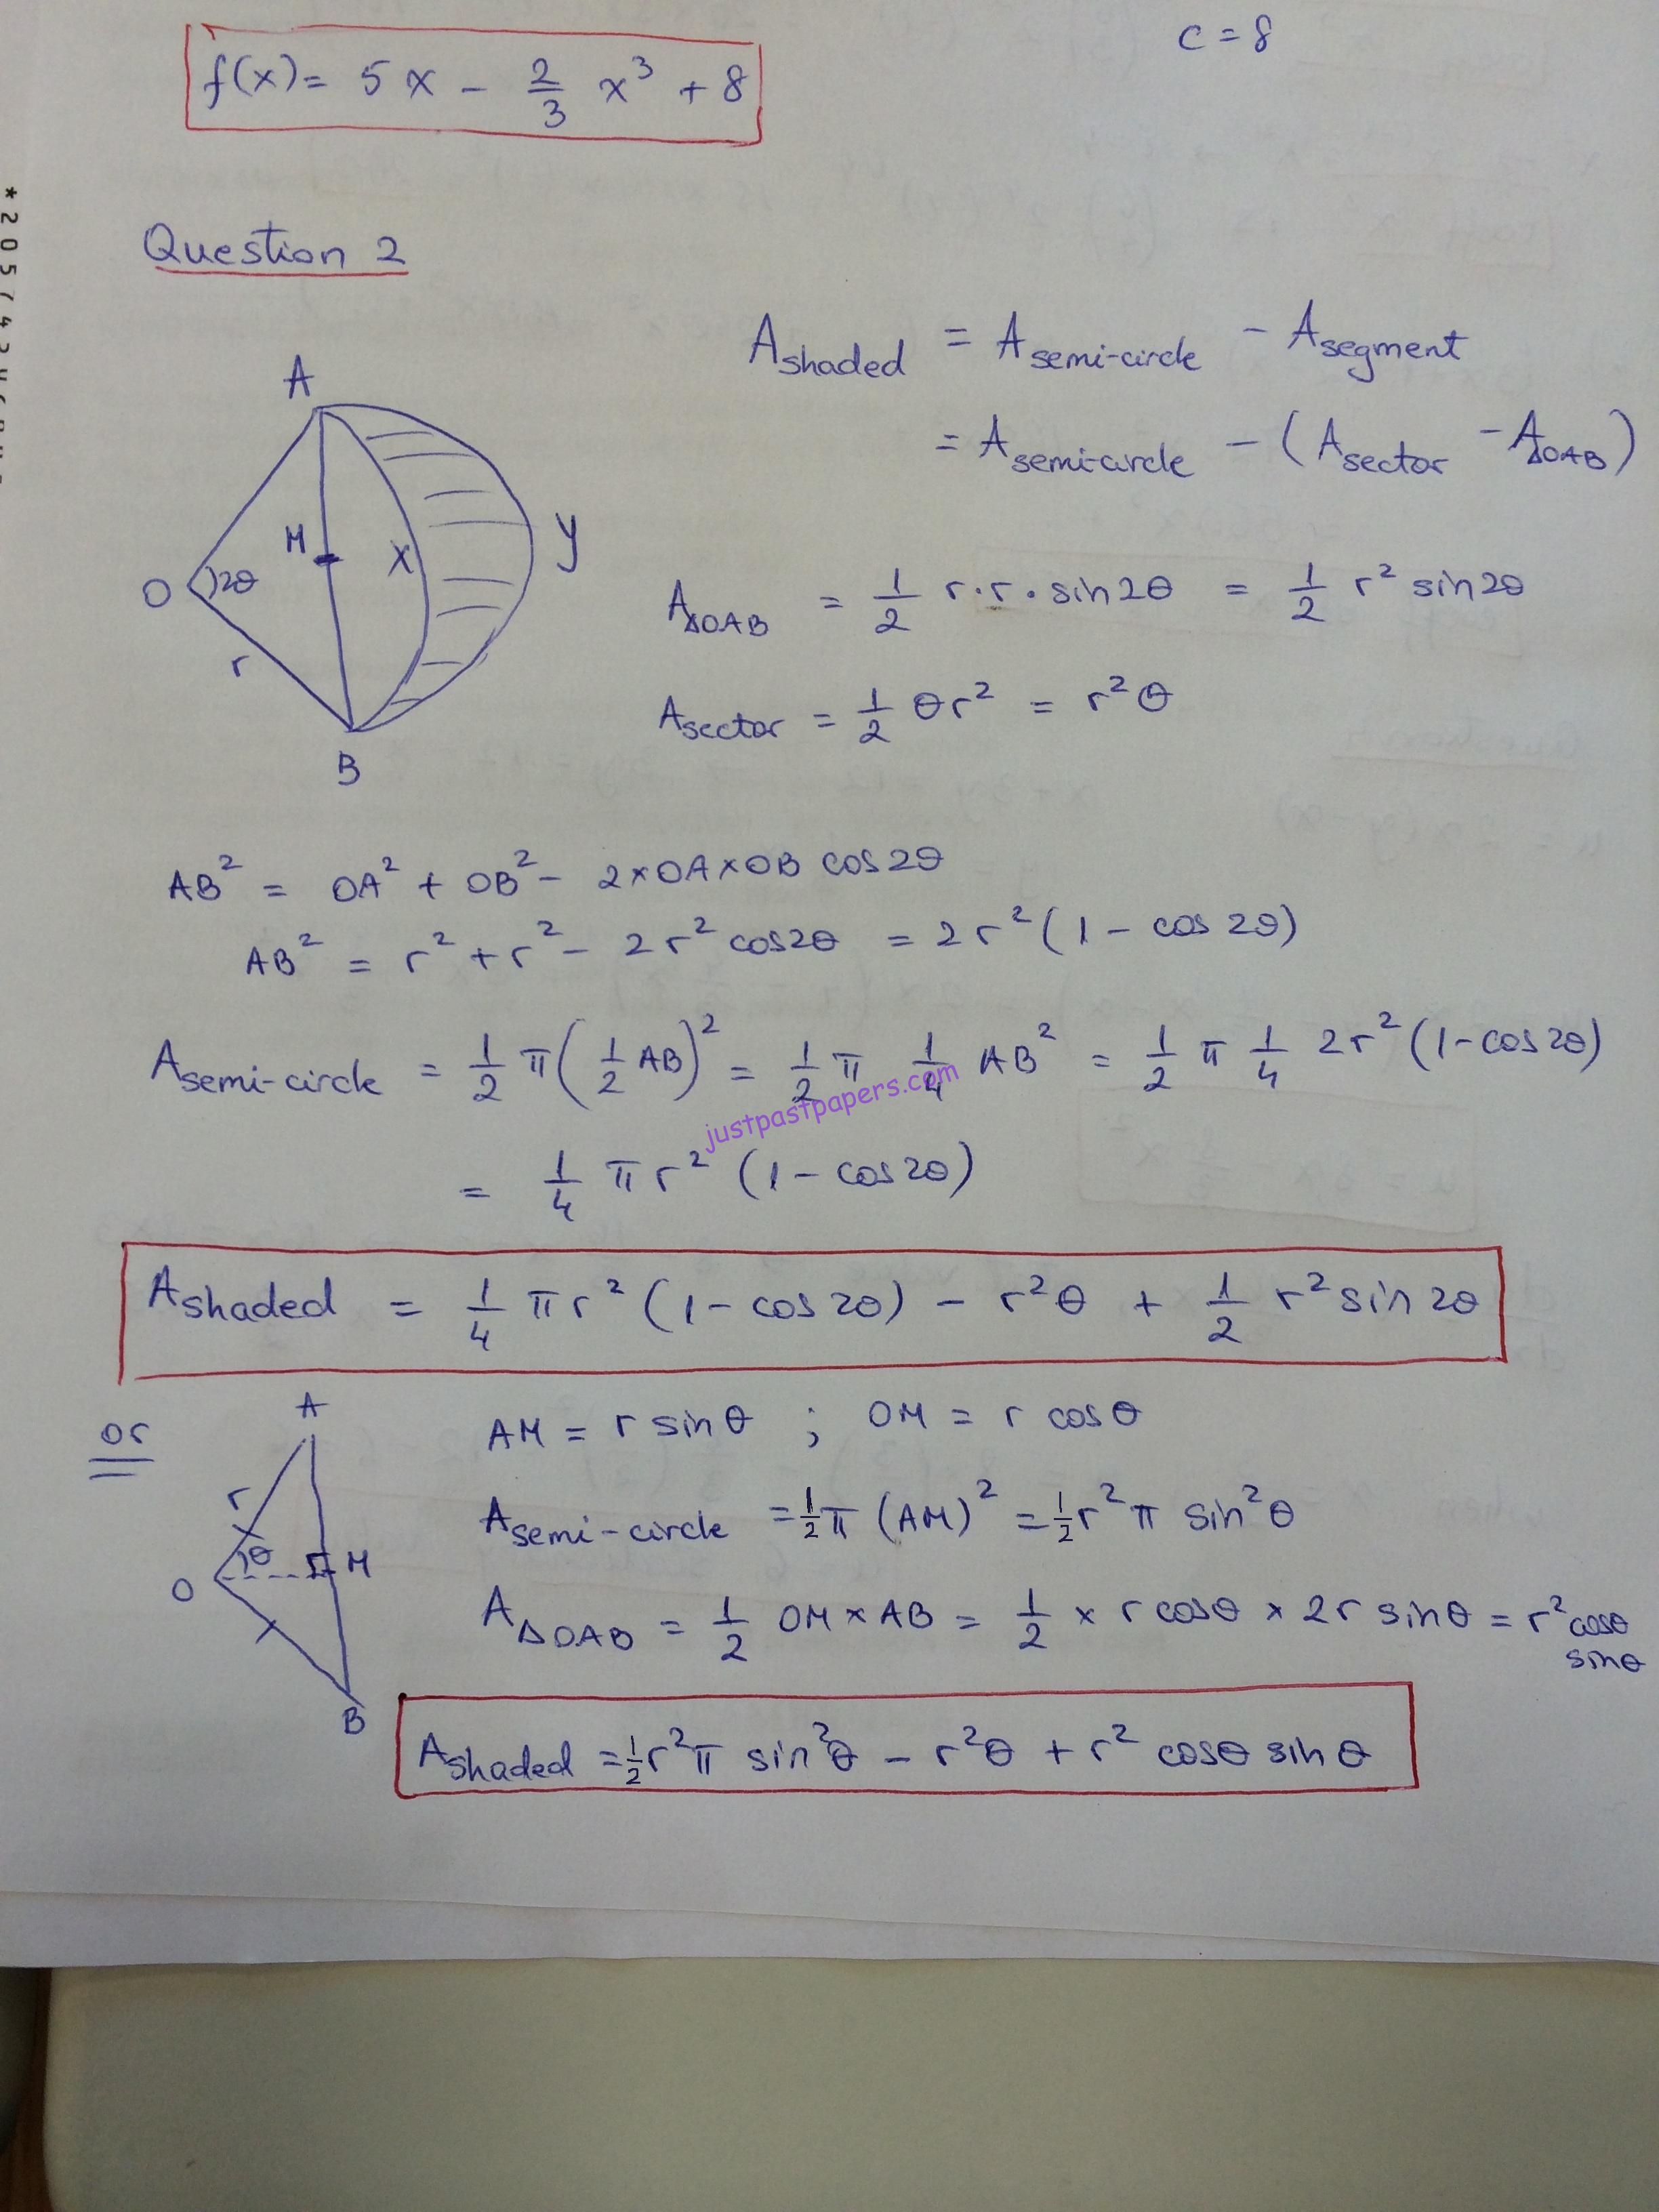 c = 8
f(x) = 5x - 2/3 x³ + 8
Question 2
A shaded = A semi-circle - A segment
= A semicircle - (A sector - A ΔOAB)
A
M
X
Y
O
2θ
r
B
A ΔOAB = 1/2 r·r·sin2θ = 1/2 r² sin2θ
A sector = 1/2 θr² = r²θ
AB² = OA² + OB² - 2×OA×OB cos2θ
AB² = r² + r² - 2r² cos2θ = 2r²(1 - cos 2θ)
A semi-circle = 1/2 π(1/2 AB)² = 1/2 π 1/4 AB² = 1/2 π 1/4 2r²(1-cos 2θ)
justpastpapers.com
= 1/4 πr² (1 - cos2θ)
A shaded = 1/4 πr² (1 - cos 2θ) - r²θ + 1/2 r² sin 2θ
or
A
r
θ
M
O
B
AM = r sinθ ; OM = r cosθ
A semi-circle = 1/2 π (AM)² = 1/2 r² π sin²θ
A ΔOAB = 1/2 OM × AB = 1/2 × r cosθ × 2r sinθ = r² cosθ
sinθ
A shaded = 1/2 r² π sin²θ - r²θ + r² cosθ sinθ